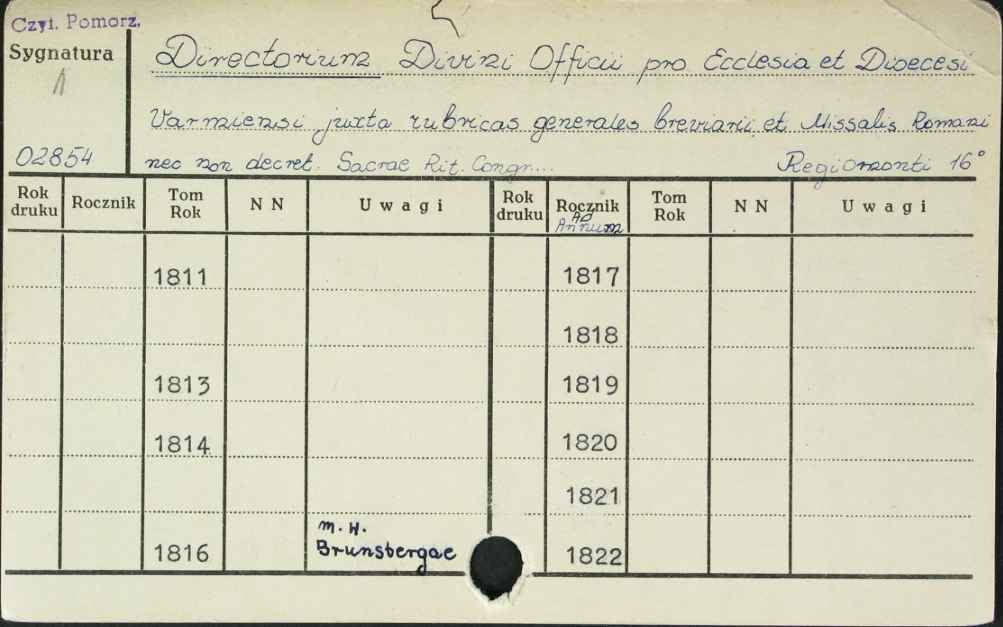 Czyt. Pomorz.
Sygnatura
Directorium Divini Officii pro Ecclesia et Dioecesi
Varmiensi juxta rubricas generales breviarii et Missalis Romani
02854 nec non decret. Sacrae Rit. Congr... Regiomonti 16°
Rok druku Rocznik Tom Rok N N Uwagi Rok druku Rocznik Ad Annum Tom Rok N N Uwagi
1811 1817
1818
1813 1819
1814 1820
1821
m. w.
1816 Brunsbergae 1822